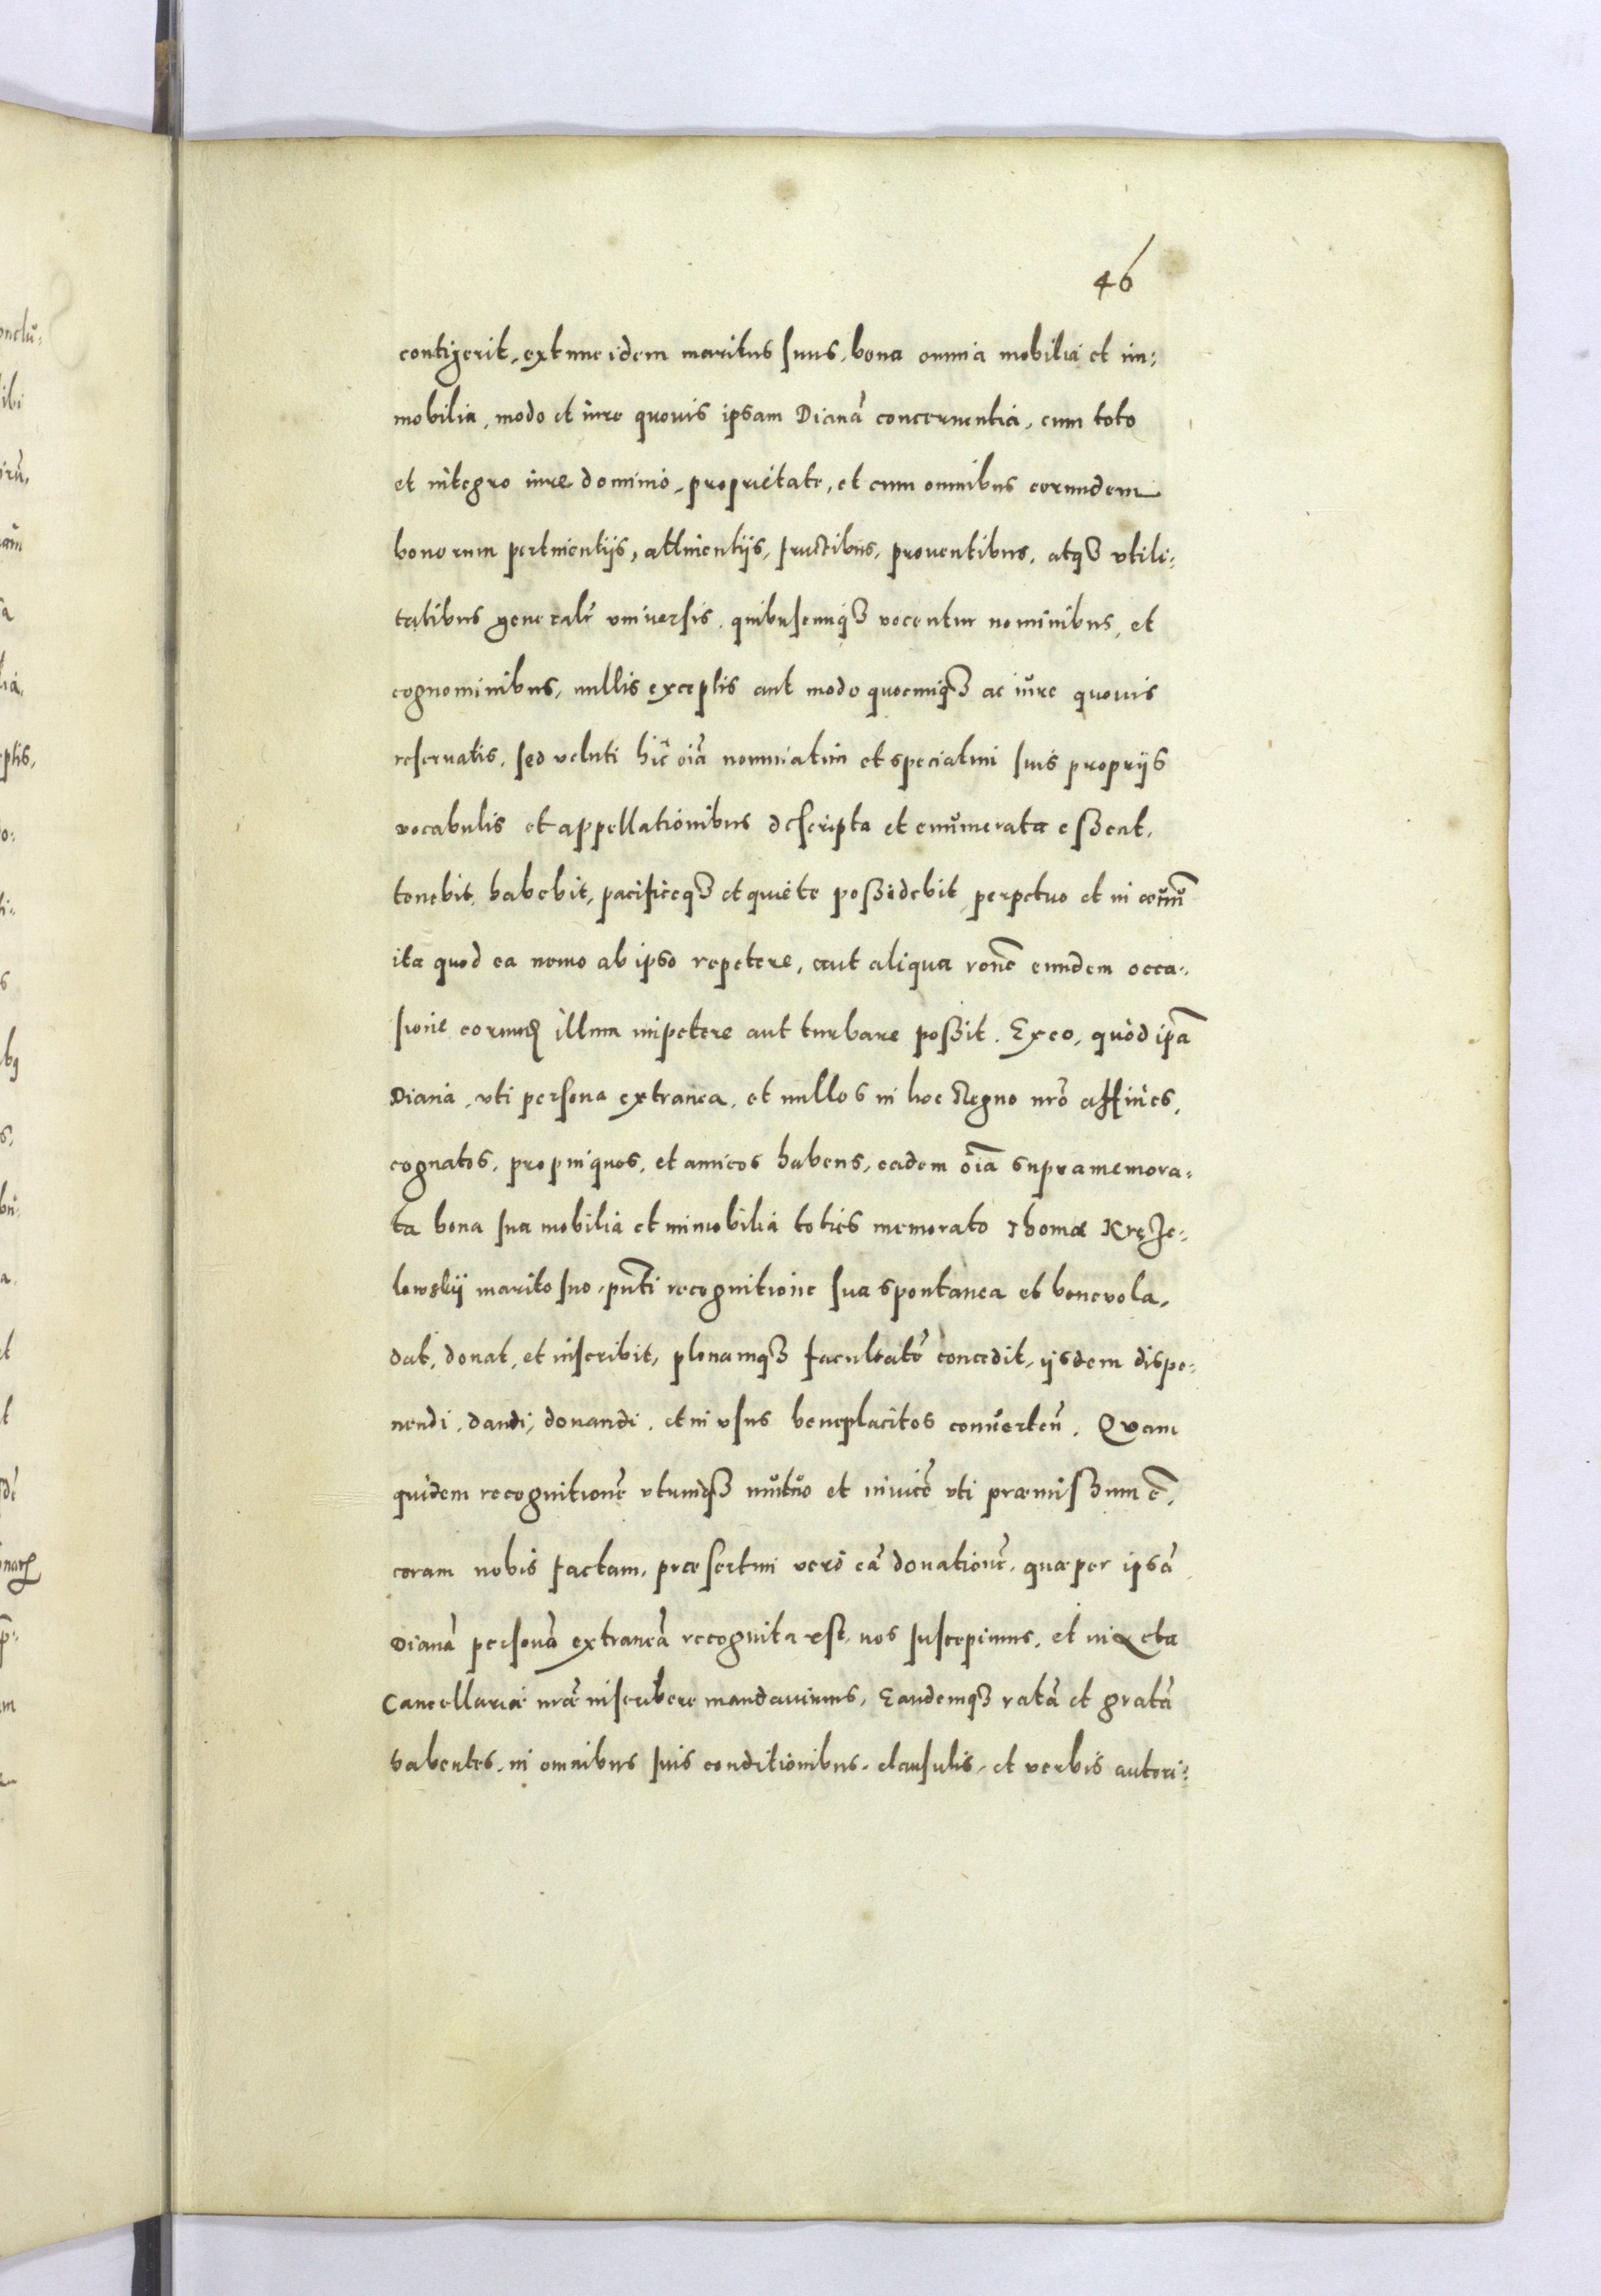 46
contigerit, extunc idem maritus suus, bona omnia mobilia et im:
mobilia, modo et iure quouis ipsam Dianā concernentia, cum toto
et integro iure dominio, proprietate, et cum omnibus eorundem
bonorum pertinentijs, attinentijs, fructibus, prouentibus, atqȝ vtili:
tatibus generalr̄ vniuersis, quibuscunqȝ vocentur nominibus, et
cognominibus, nullis exceptis aut modo quocunqȝ ac iure quouis
reseruatis, sed veluti hic oīa nominatim et speciatim suis proprijs
vocabulis et appellationibus descripta et enumerata essent,
tenebit, habebit, pacificeqȝ et quiete possidebit perpetuo et in æuum
ita quod ea nemo ab ipso repetere, aut aliqua rōne eundem occa:
sione eorund illum impetere aut turbare possit. Ex eo, quòd ipā
Diana, vti persona extranea, et nullos in hoc Regno nrō affines,
cognatos, propinquos, et amicos habens, eadem oīa supramemora:
ta bona sua mobilia et immobilia toties memorato Thomæ Kręze:
lowskij marito suo, pn̄ti recognitione sua spontanea et beneuola,
dat, donat, et inscribit, plenamqȝ facultatē concedit, ijsdem dispo:
nendi, dandi, donandi, et in vsus beneplacitos conuerten̄. Quam
quidem recognitionē vtrinqȝ mutuo et inuicē vti præmissum ē,
coram nobis factam, præsertim verò eā donationē, quæ per ipsā
Dianā personā extraneā recognita est, nos suscepimus, et in acta
Cancellariæ nrǣ inscribere mandauimus, Eandemqȝ ratā et gratā
habentes, in omnibus suis conditionibus, clausulis, et verbis autori: